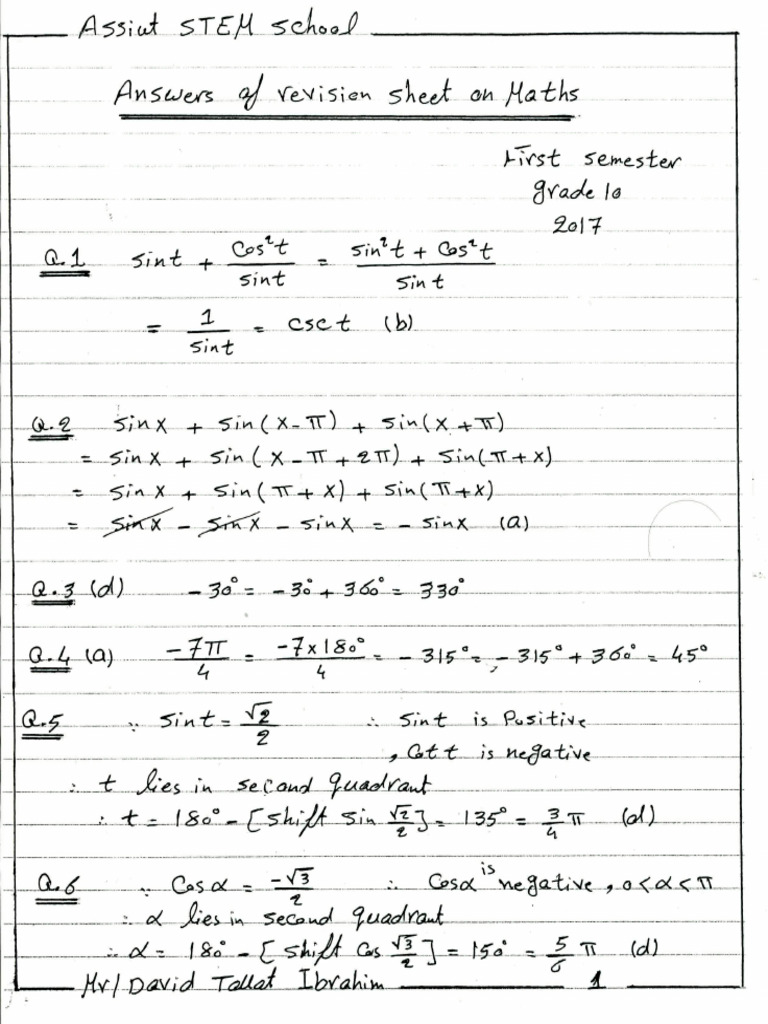 Assiut STEM school
Answers of revision sheet on Maths
First semester
grade 10
2017
Q.1 sint + cos²t/sint = (sin²t + cos²t)/sint
= 1/sint = csct (b)
Q.2 sinx + sin(x-π) + sin(x+π)
= sinx + sin(x-π+2π) + sin(π+x)
= sinx + sin(π+x) + sin(π+x)
= sinx - sinx - sinx = - sinx (a)
Q.3 (d) -30° = -30° + 360° = 330°
Q.4 (a) -7π/4 = (-7×180°)/4 = -315° = -315° + 360° = 45°
Q.5 ∵ sint = √2/2 ∴ sint is Positive
, Cott is negative
∴ t lies in second quadrant
∴ t = 180° - [shift sin √2/2] = 135° = 3/4 π (d)
Q.6 ∵ Cosα = -√3/2 ∴ Cosα is negative, 0<α<π
∴ α lies in second quadrant
∴ α = 180° - [shift cos √3/2] = 150° = 5/6 π (d)
Mr/David Tallat Ibrahim 1